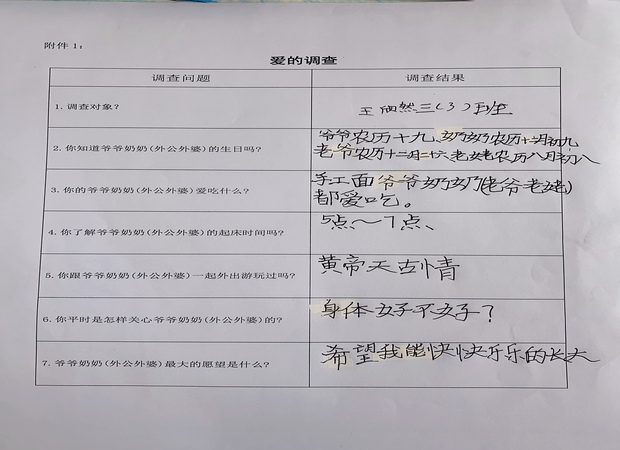 附件1：
爱的调查
调查问题 调查结果
1. 调查对象？ 王 然三(3)班
2. 你知道爷爷奶奶(外公外婆)的生日吗？ 爷爷农历十九、奶奶农历十二月初九
老爷农历十二月二十六、老姥农历八月初八
3. 你的爷爷奶奶(外公外婆)爱吃什么？ 手工面爷爷奶奶(老爷老姥)
都爱吃。
4. 你了解爷爷奶奶(外公外婆)的起床时间吗？ 5点～7点、
5. 你跟爷爷奶奶(外公外婆)一起外出游玩过吗？ 黄帝天古情
6. 你平时是怎样关心爷爷奶奶(外公外婆)的？ 身体好不好？
7. 爷爷奶奶(外公外婆)最大的愿望是什么？ 希望我能快快乐乐的长大